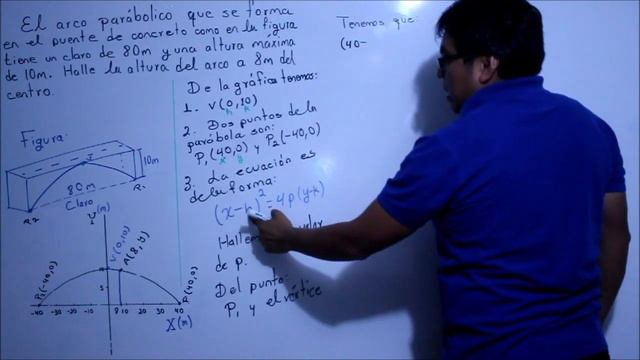 El arco parábolico, que se forma
en el puente de concreto como en la figura
tiene un claro de 80m y una altura maxima
de 10m. Halle la altura del arco a 8m del
centro.
Figura:
10m
80m
Claro
P2
P1
Y(m)
V(0,10)
A(8,y)
P2(-40,0)
P1(40,0)
10
5
-40 -30 -20 -10 8 10 20 30 40
X(m)
De la gráfica tenemos:
1. V(0,10)
h k
2. Dos puntos de la
parábola son:
P1(40,0) y P2(-40,0)
x y
3. La ecuación es
de la forma:
(x-h)²=4p(y-k)
de p.
Del punto:
P1 y el vértice
Tenemos que:
(40-